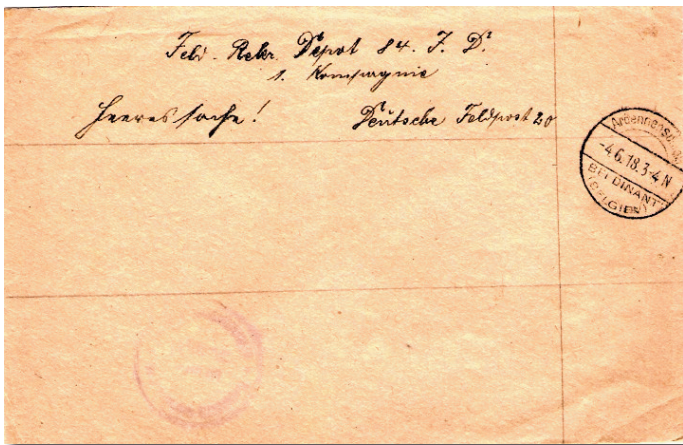 Feld-Rekr. Depot 84. J. D.
1. Kompagnie
Heeressache!
Deutsche Feldpost 20
Ardennensch
-4.6.18.3-4 N
BEI DINANT
(BELGIEN)